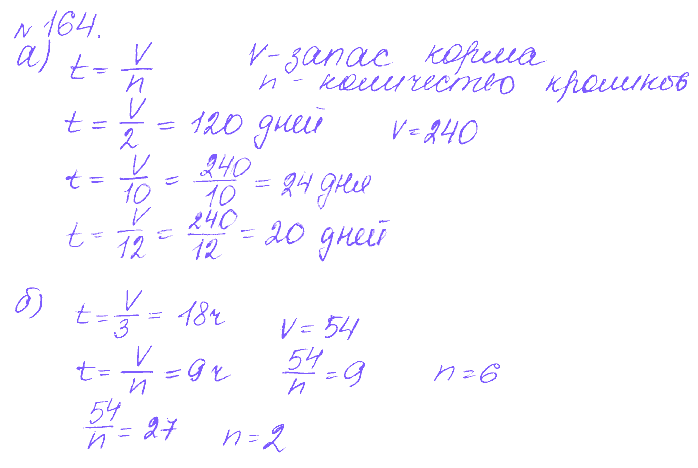 № 164.
а) t = V/n V - запас корма
n - количество кроликов
t = V/2 = 120 дней V = 240
t = V/10 = 240/10 = 24 дня
t = V/12 = 240/12 = 20 дней
б) t = V/3 = 18ч V = 54
t = V/n = 9ч 54/n = 9 n = 6
54/n = 27 n = 2